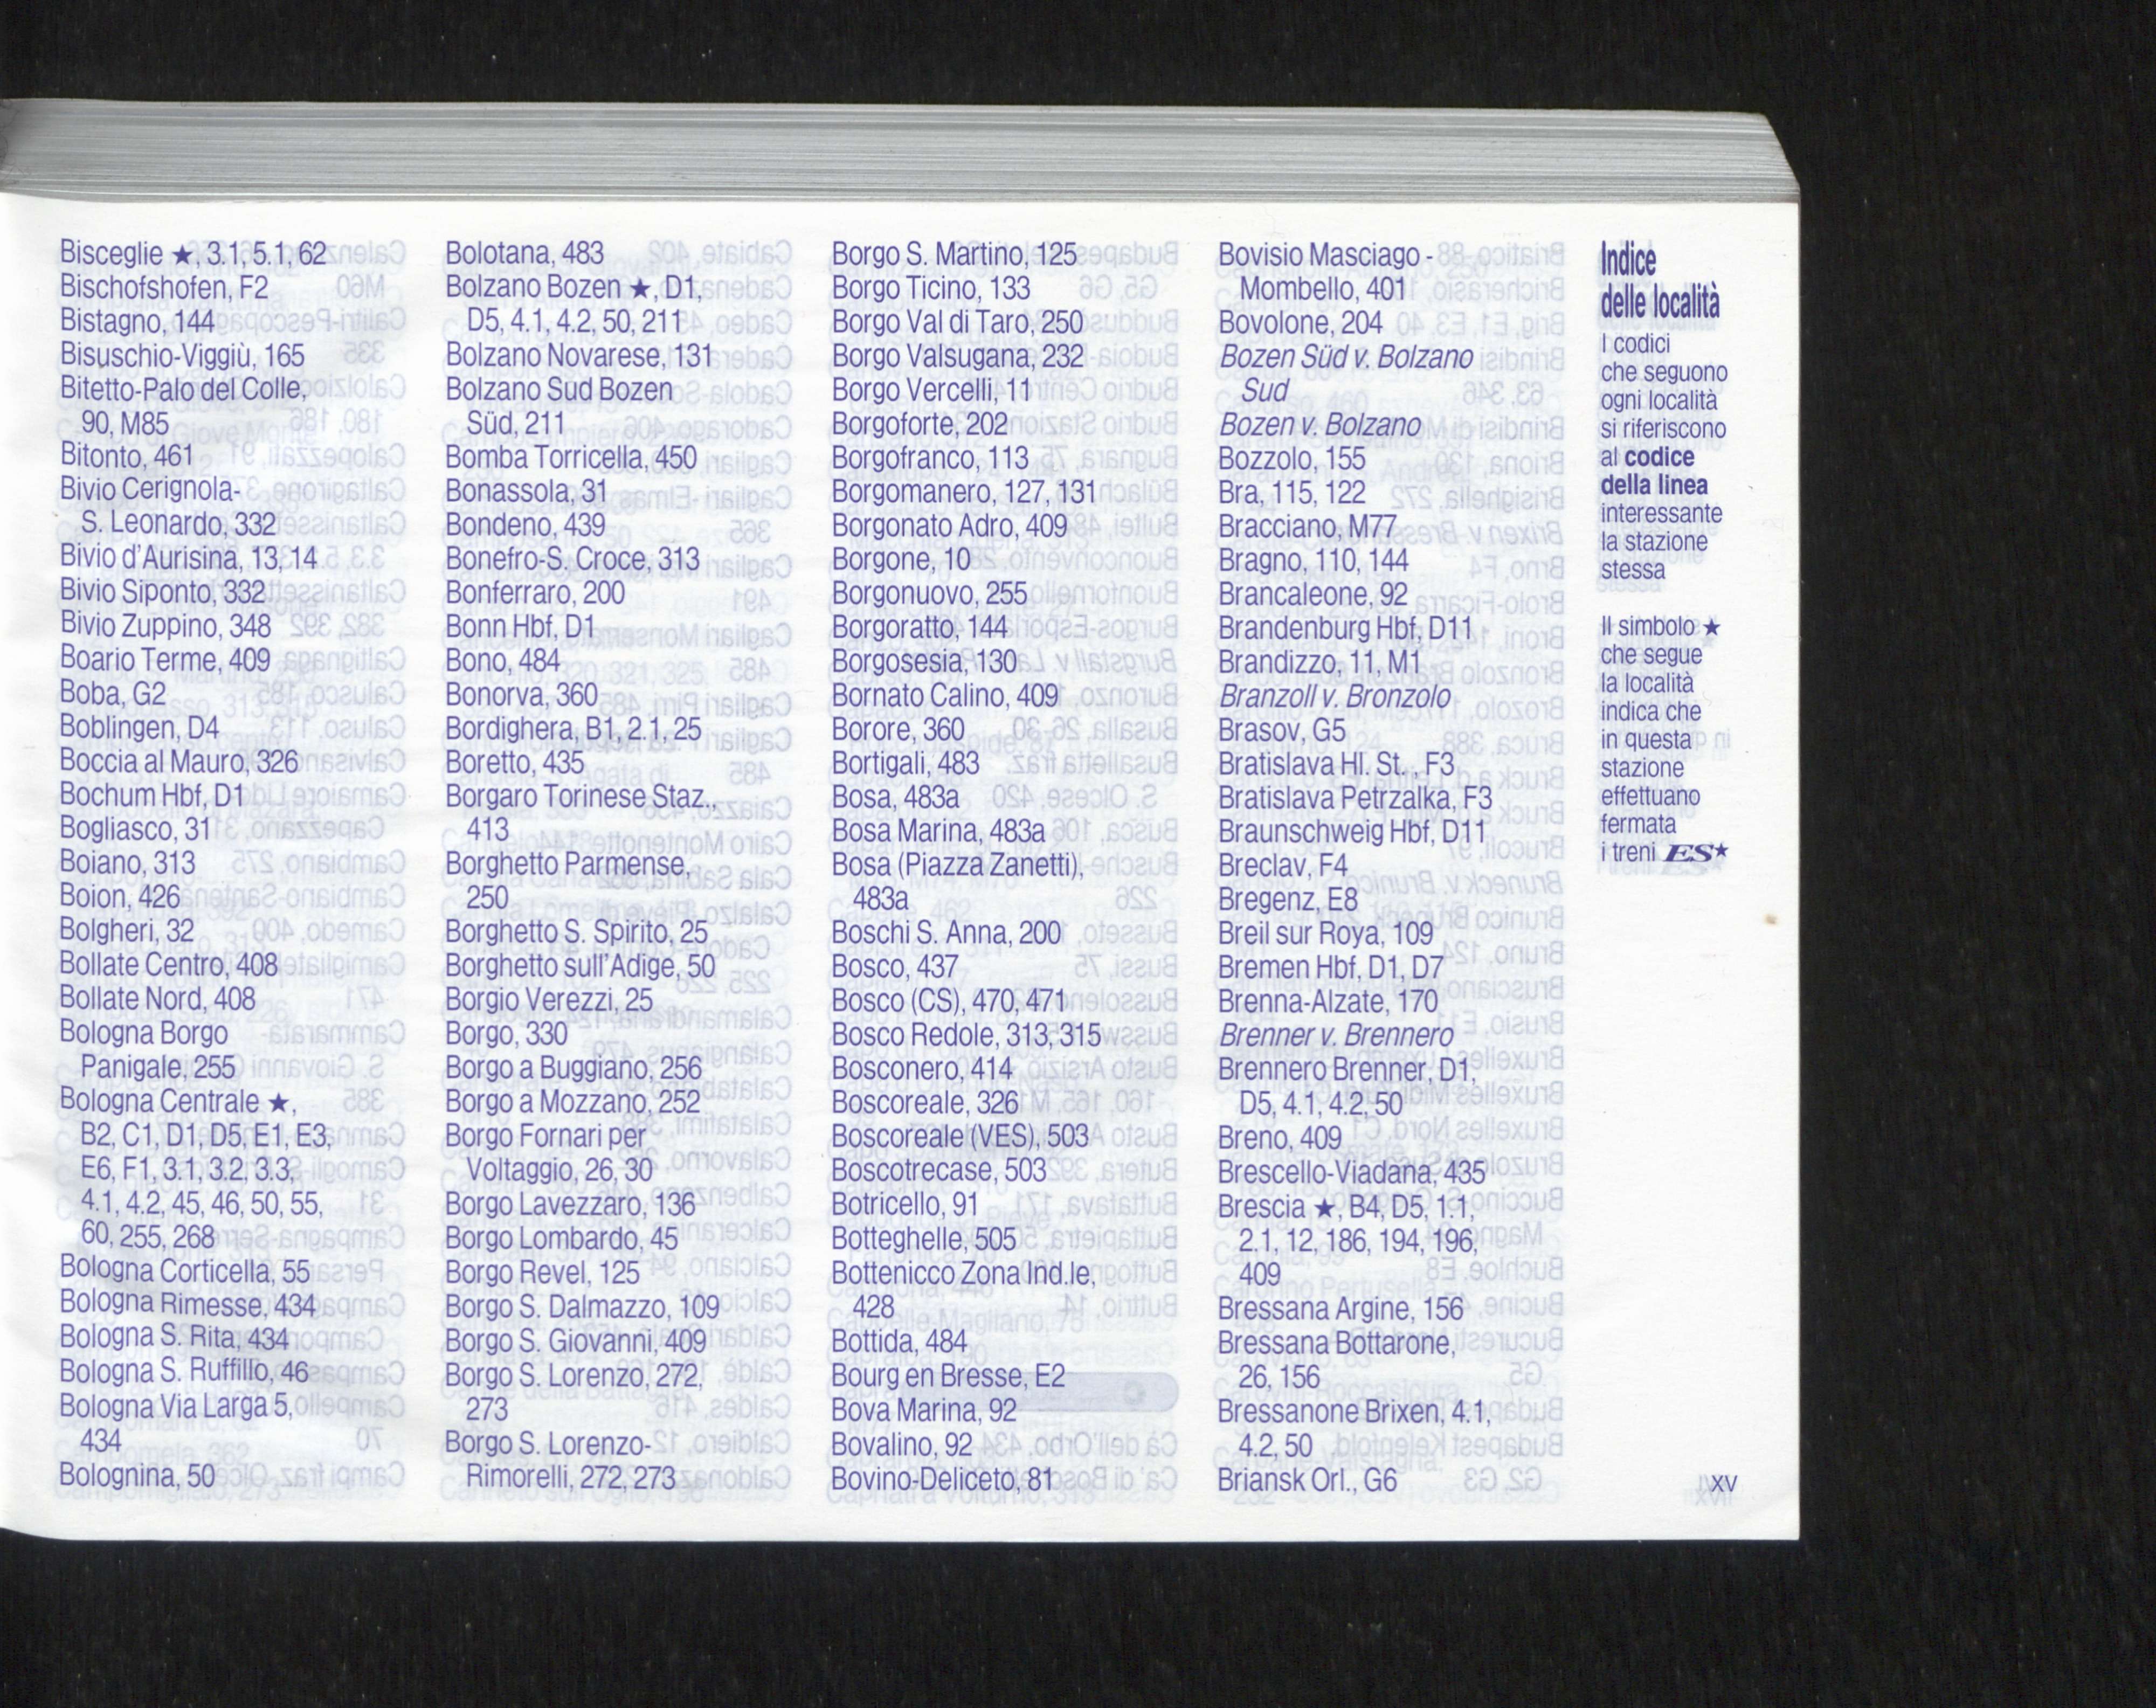 Bisceglie ★, 3.1, 5.1, 62
Bischofshofen, F2
Bistagno, 144
Bisuschio-Viggiù, 165
Bitetto-Palo del Colle,
90, M85
Bitonto, 461
Bivio Cerignola-
S. Leonardo, 332
Bivio d'Aurisina, 13, 14
Bivio Siponto, 332
Bivio Zuppino, 348
Boario Terme, 409
Boba, G2
Boblingen, D4
Boccia al Mauro, 326
Bochum Hbf, D1
Bogliasco, 31
Boiano, 313
Boion, 426
Bolgheri, 32
Bollate Centro, 408
Bollate Nord, 408
Bologna Borgo
Panigale, 255
Bologna Centrale ★,
B2, C1, D1, D5, E1, E3,
E6, F1, 3.1, 3.2, 3.3,
4.1, 4.2, 45, 46, 50, 55,
60, 255, 268
Bologna Corticella, 55
Bologna Rimesse, 434
Bologna S. Rita, 434
Bologna S. Ruffillo, 46
Bologna Via Larga 5,
434
Bolognina, 50
Bolotana, 483
Bolzano Bozen ★, D1,
D5, 4.1, 4.2, 50, 211
Bolzano Novarese, 131
Bolzano Sud Bozen
Süd, 211
Bomba Torricella, 450
Bonassola, 31
Bondeno, 439
Bonefro-S. Croce, 313
Bonferraro, 200
Bonn Hbf, D1
Bono, 484
Bonorva, 360
Bordighera, B1, 2.1, 25
Boretto, 435
Borgaro Torinese Staz.,
413
Borghetto Parmense,
250
Borghetto S. Spirito, 25
Borghetto sull'Adige, 50
Borgio Verezzi, 25
Borgo, 330
Borgo a Buggiano, 256
Borgo a Mozzano, 252
Borgo Fornari per
Voltaggio, 26, 30
Borgo Lavezzaro, 136
Borgo Lombardo, 45
Borgo Revel, 125
Borgo S. Dalmazzo, 109
Borgo S. Giovanni, 409
Borgo S. Lorenzo, 272,
273
Borgo S. Lorenzo-
Rimorelli, 272, 273
Borgo S. Martino, 125
Borgo Ticino, 133
Borgo Val di Taro, 250
Borgo Valsugana, 232
Borgo Vercelli, 11
Borgoforte, 202
Borgofranco, 113
Borgomanero, 127, 131
Borgonato Adro, 409
Borgone, 10
Borgonuovo, 255
Borgoratto, 144
Borgosesia, 130
Bornato Calino, 409
Borore, 360
Bortigali, 483
Bosa, 483a
Bosa Marina, 483a
Bosa (Piazza Zanetti),
483a
Boschi S. Anna, 200
Bosco, 437
Bosco (CS), 470, 471
Bosco Redole, 313, 315
Bosconero, 414
Boscoreale, 326
Boscoreale (VES), 503
Boscotrecase, 503
Botricello, 91
Botteghelle, 505
Bottenicco Zona Ind.le,
428
Bottida, 484
Bourg en Bresse, E2
Bova Marina, 92
Bovalino, 92
Bovino-Deliceto, 81
Bovisio Masciago -
Mombello, 401
Bovolone, 204
Bozen Süd v. Bolzano
Sud
Bozen v. Bolzano
Bozzolo, 155
Bra, 115, 122
Bracciano, M77
Bragno, 110, 144
Brancaleone, 92
Brandenburg Hbf, D11
Brandizzo, 11, M1
Branzoll v. Bronzolo
Brasov, G5
Bratislava Hl. St., F3
Bratislava Petrzalka, F3
Braunschweig Hbf, D11
Breclav, F4
Bregenz, E8
Breil sur Roya, 109
Bremen Hbf, D1, D7
Brenna-Alzate, 170
Brenner v. Brennero
Brennero Brenner, D1,
D5, 4.1, 4.2, 50
Breno, 409
Brescello-Viadana, 435
Brescia ★, B4, D5, 1.1,
2.1, 12, 186, 194, 196,
409
Bressana Argine, 156
Bressana Bottarone,
26, 156
Bressanone Brixen, 4.1,
4.2, 50
Briansk Orl., G6
Indice
delle località
I codici
che seguono
ogni località
si riferiscono
al codice
della linea
interessante
la stazione
stessa
Il simbolo ★
che segue
la località
indica che
in questa
stazione
effettuano
fermata
i treni ES★
XV